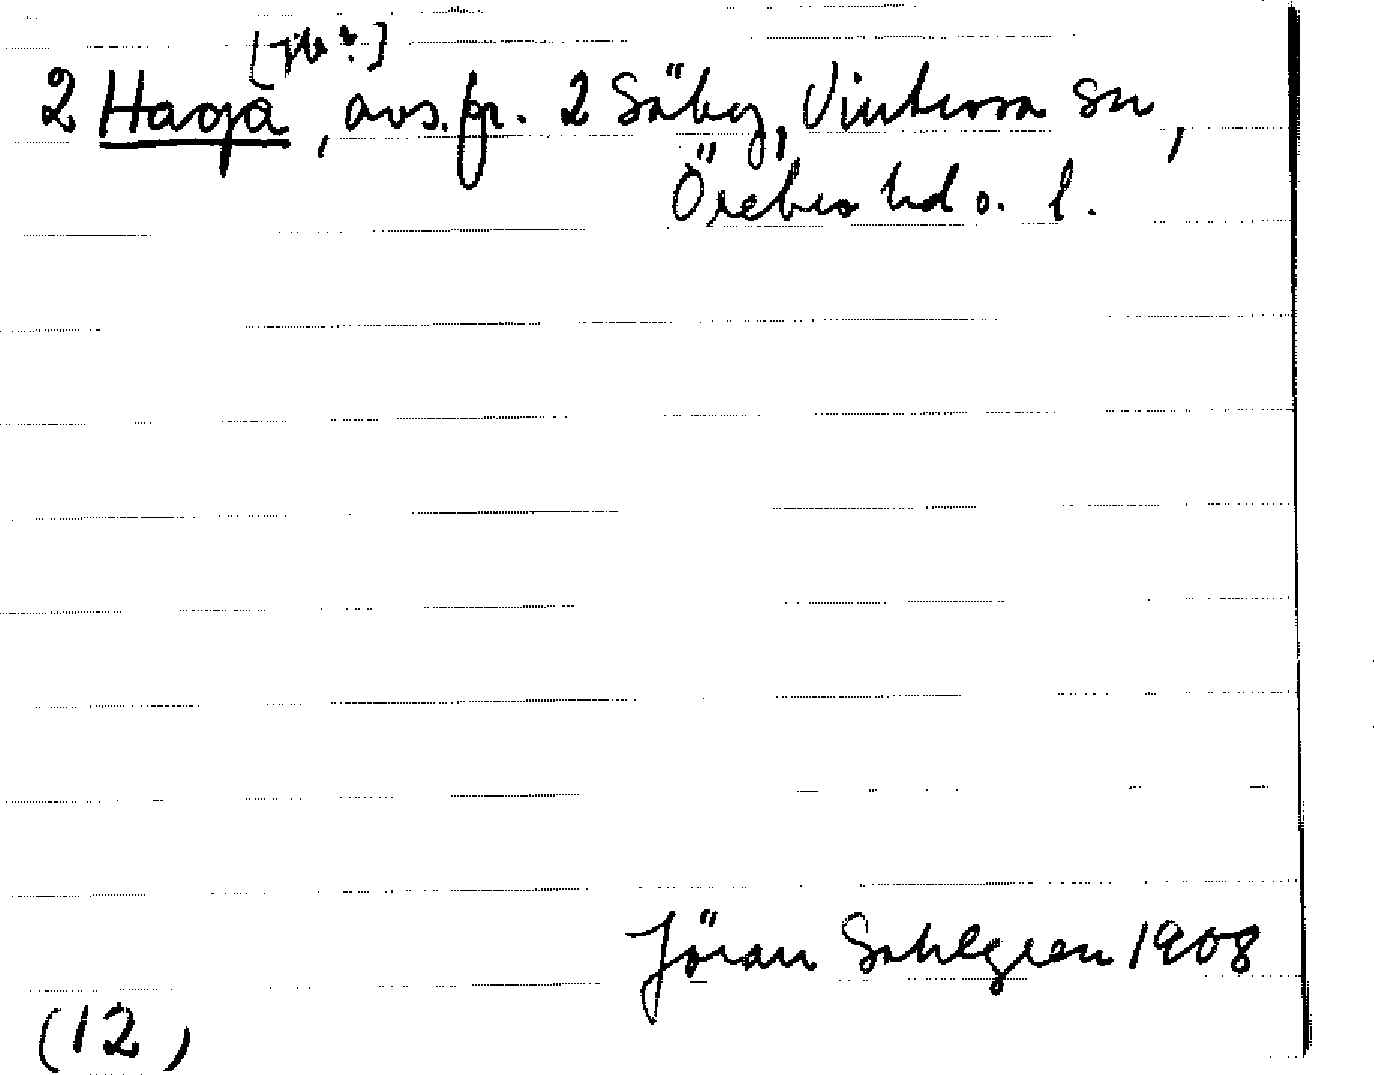 2 Haga, avs. fr. 2 Säby, Vintrosa sn,
Örebro hd o. l.
Jöran Sahlgren 1908
(12)